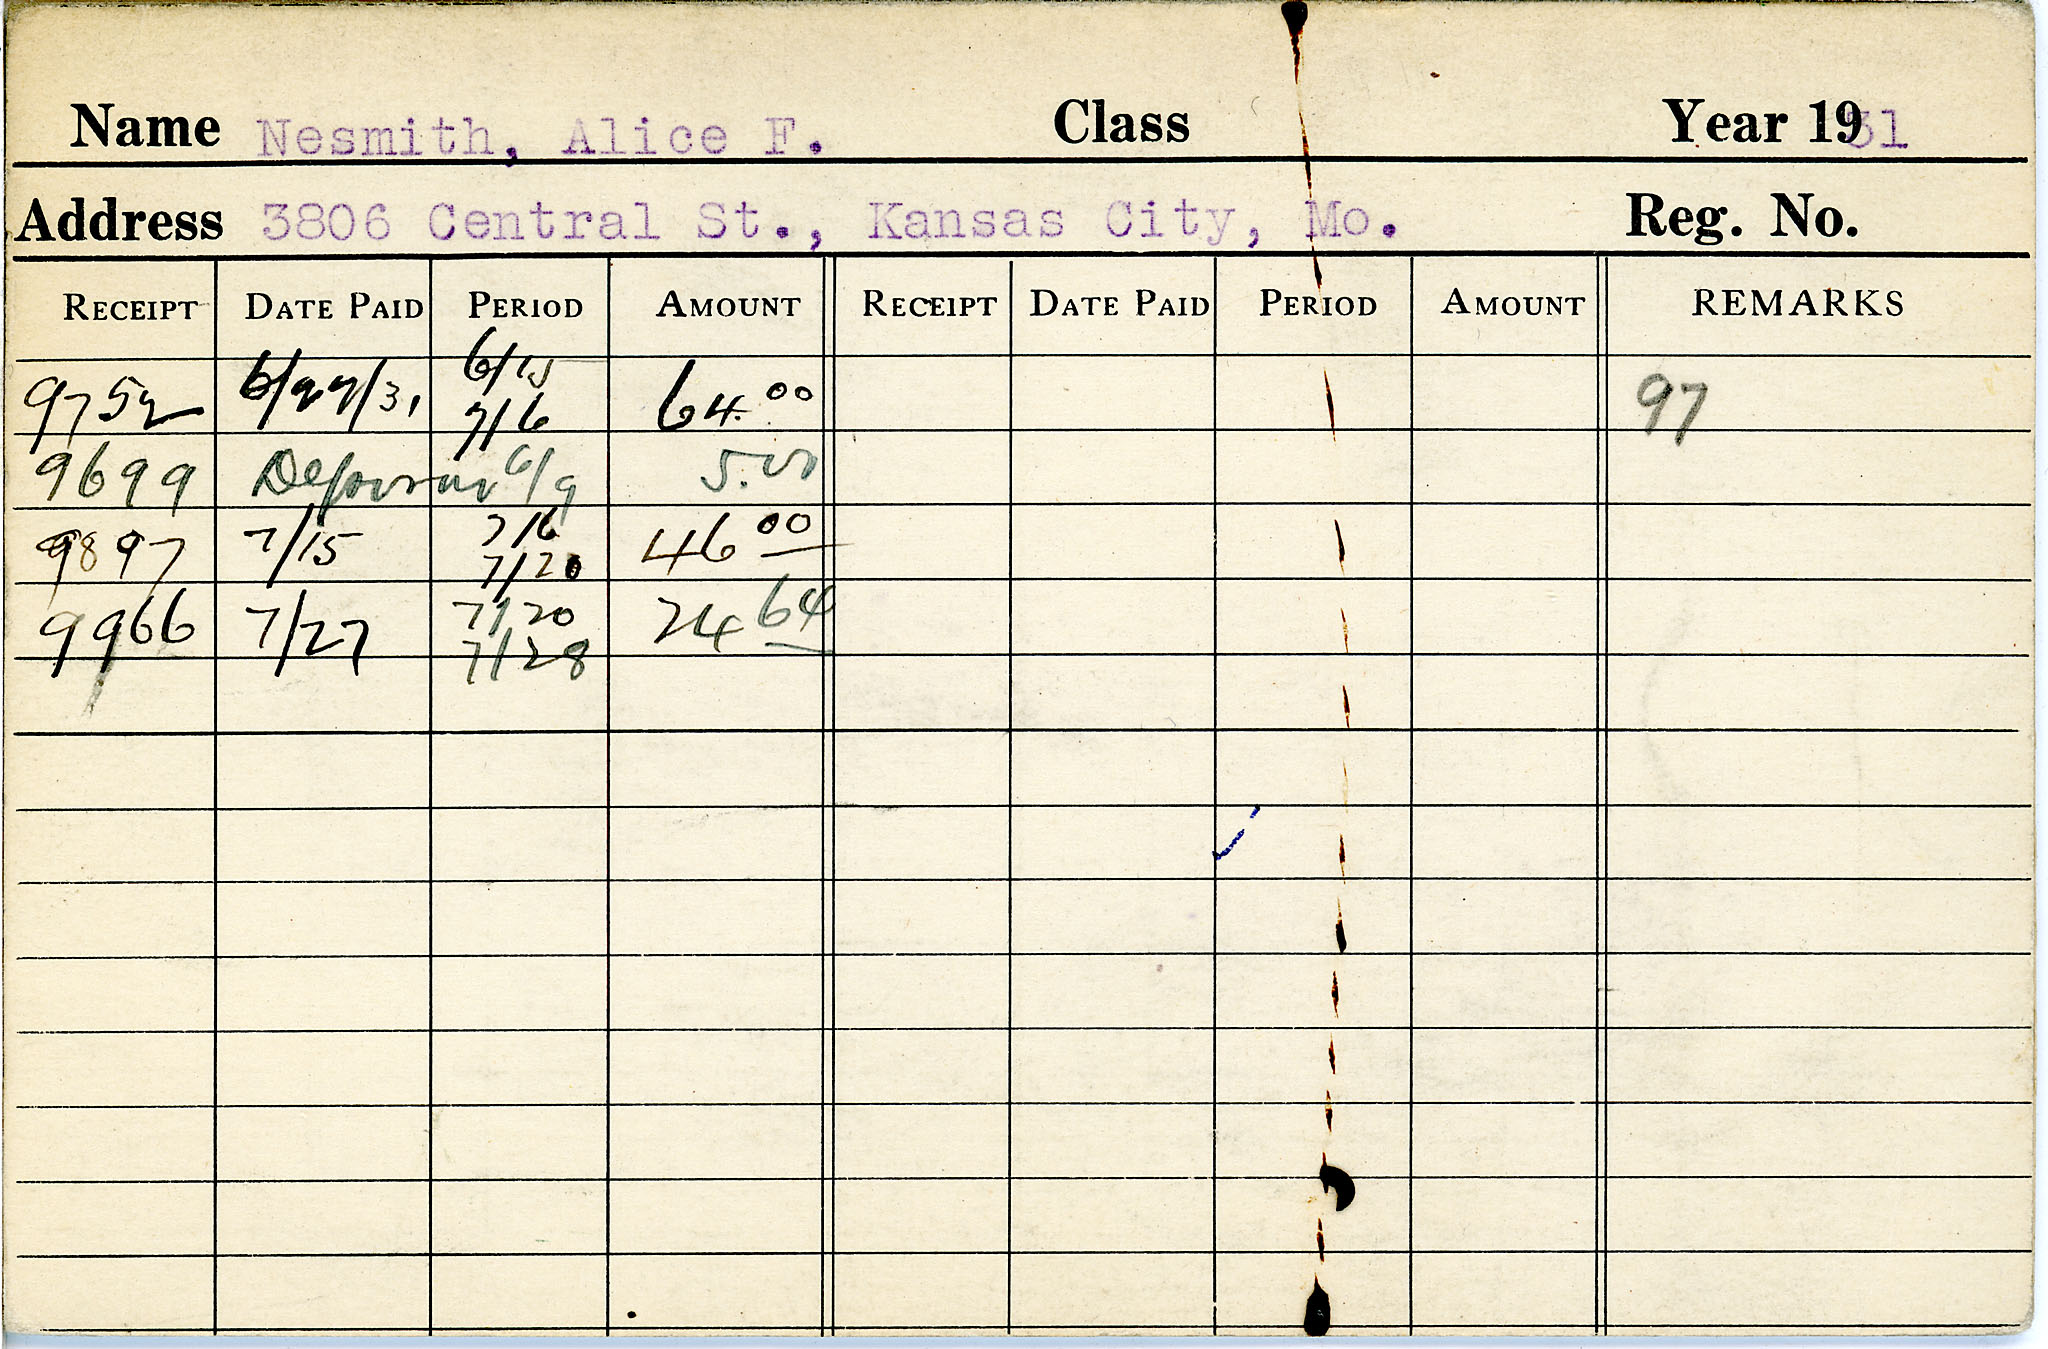 Name Nesmith, Alice F. Class Year 1931
Address 3806 Central St., Kansas City, Mo. Reg. No.
RECEIPT DATE PAID PERIOD AMOUNT RECEIPT DATE PAID PERIOD AMOUNT REMARKS
6/15
9752 6/27/31 7/6 64.00 97
9699 6/9 5.00
7/6
9897 7/15 7/20 46 00
7/20
9966 7/27 7/28 24 64